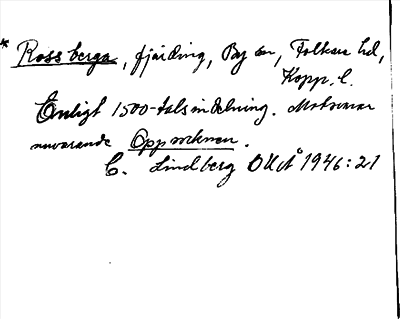 * Rossberga, fjärding, By sn, Folkare hd,
Kopp. l.
Enligt 1500-tals indelning. Motsvarar
nuvarande Oppsveten.
C. Lindberg OUÅ 1946:21